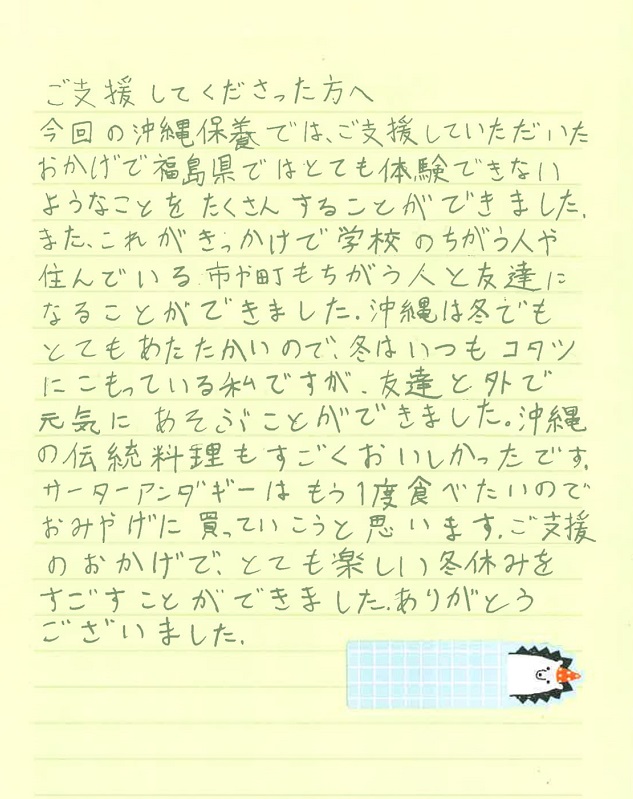 ご支援してくださった方へ
今回の沖縄保養では、ご支援していただいた
おかげで福島県ではとても体験できない
ようなことをたくさんすることができました.
また、これがきっかけで学校のちがう人や
住んでいる市や町もちがう人と友達に
なることができました.沖縄は冬でも
とてもあたたかいので、冬はいつもコタツ
にこもっている私ですが、友達と外で
元気にあそぶことができました。沖縄
の伝統料理もすごくおいしかったです.
サーターアンダギーはもう1度食べたいので
おみやげに買っていこうと思います.ご支援
のおかげで、とても楽しい冬休みを
すごすことができました.ありがとう
ございました.